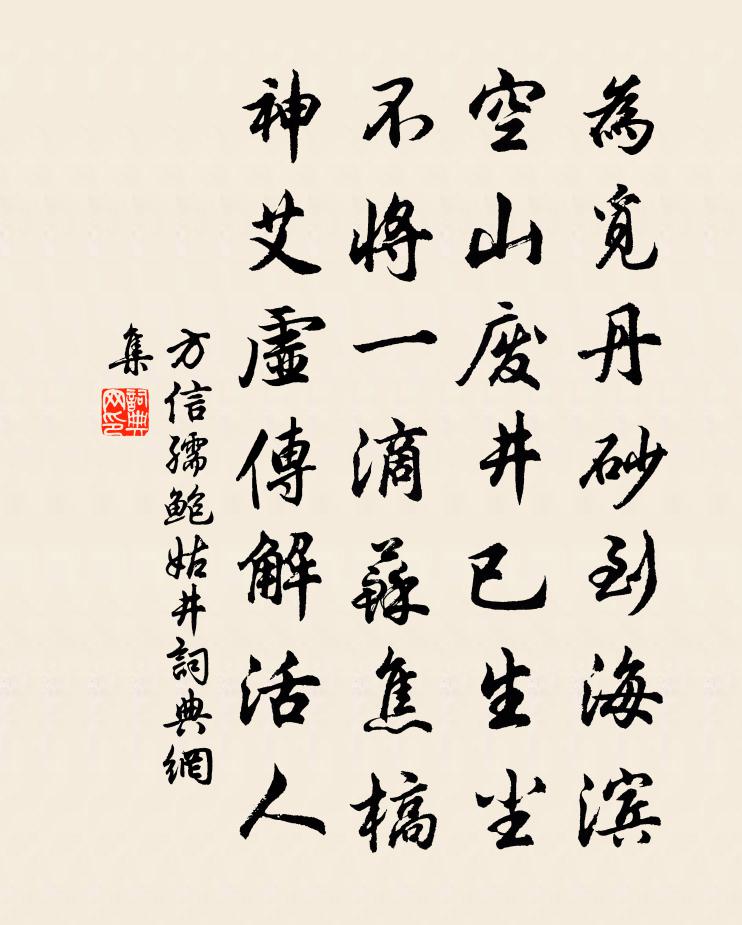 為覓丹砂到海滨
空山廢井已生尘
不將一滴蘇焦槁
神艾虛傳解活人
方信孺鮑姑井詞典網
集
詞典网印